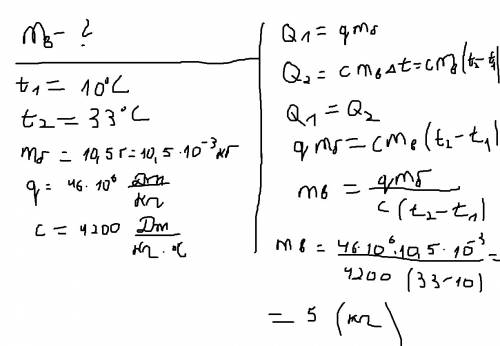 mв - ?
t1 = 10°C
t2 = 33°C
mб = 10,5 г = 10,5 · 10^-3 кг
q = 46 · 10^6 Дж/кг
c = 4200 Дж/кг · °C
Q1 = qmб
Q2 = cmвΔt = cmв(t2 - t1)
Q1 = Q2
qmб = cmв(t2 - t1)
mв = qmб / c(t2 - t1)
mв = 46·10^6·10,5·10^-3 / 4200 (33-10) =
= 5 (кг)